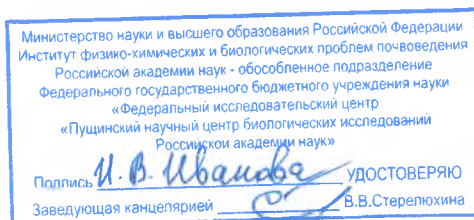 Министерство науки и высшего образования Российской Федерации
Институт физико-химических и биологических проблем почвоведения
Российской академии наук - обособленное подразделение
Федерального государственного бюджетного учреждения науки
«Федеральный исследовательский центр
«Пущинский научный центр биологических исследований
Российской академии наук»
Подпись И. В. Иванова УДОСТОВЕРЯЮ
Заведующая канцелярией В.В.Стерелюхина